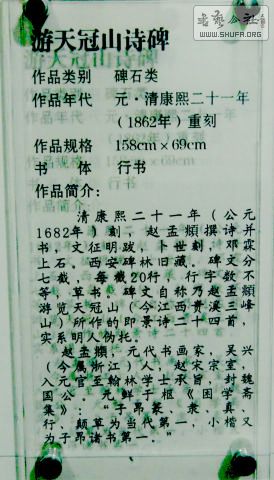 書藝公社
WWW.SHUFA.ORG
游天冠山诗碑
作品类别 碑石类
作品年代 元·清康熙二十一年
(1862年)重刻
作品规格 158cm×69cm
书体 行书
作品简介:
清康熙二十一年(公元
1682年)刻，赵孟頫撰诗并
书，文征明跋，卜世刻，邓霖
上石。西安碑林旧藏。碑文分
七截，每截20行，行字数不
等，草书。碑文自称乃赵孟頫
游览天冠山(今江西贵溪三峰
山)所作的即景诗二十四首，
实系明人伪托。
赵孟頫，元代书画家，吴兴
(今属浙江)人，赵宋宗室，
入元官至翰林学士承旨，封魏
国公。元鲜于枢《困学斋
集》：“子昂篆、隶、真、
行、颠草为当代第一，小楷又
为子昂诸书第一。”